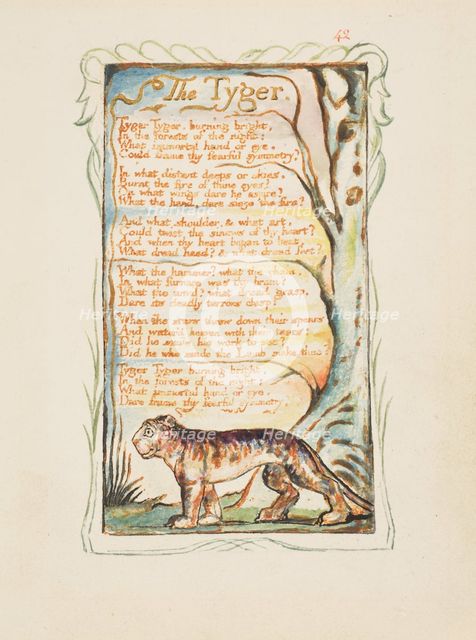 42
The Tyger.
Tyger Tyger, burning bright,
In the forests of the night:
What immortal hand or eye,
Could frame thy fearful symmetry?
In what distant deeps or skies,
Burnt the fire of thine eyes?
On what wings dare he aspire?
What the hand, dare sieze the fire?
And what shoulder, & what art,
Could twist the sinews of thy heart?
And when thy heart began to beat,
What dread hand? & what dread feet?
What the hammer? what the chain,
In what furnace was thy brain?
What the anvil? what dread grasp,
Dare its deadly terrors clasp!
When the stars threw down their spears
And water'd heaven with their tears:
Did he smile his work to see?
Did he who made the Lamb make thee?
Tyger Tyger burning bright,
In the forests of the night:
What immortal hand or eye,
Dare frame thy fearful symmetry?
Heritage Heritage
Heritage Heritage Heritage
Heritage Heritage